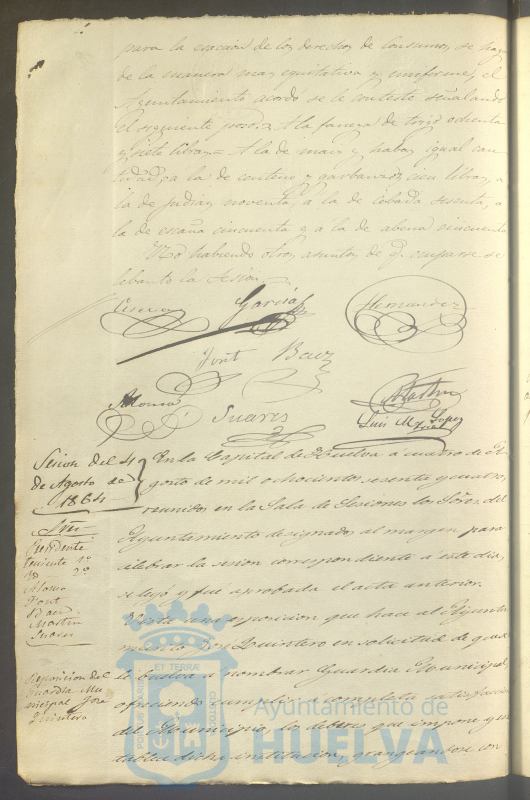 para la exaccion de los derechos de consumos, se haga
de la manera mas equitativa y uniforme, el
Ayuntamiento acordó se le conteste señalando
el siguiente A la fanega de trigo ochenta
y siete libras = A la de maiz y habas igual can
tidad, a la de centeno y garbanzos cien libras, a
la de judias noventa, a la de cebada sesenta, a
la de escaña cincuenta y a la de abena cincuenta
No habiendo otros asuntos de q. ocuparse se
lebantó la sesion
García Hernandez
Font Baez
Alonso Suares Martin
Luis M. Lopez
Sesion del 4
de Agosto de
1864
En la Capital de Huelva a cuatro de A
gosto de mil ochocientos sesenta y cuatro,
reunidos en la Sala de Sesiones los Sres. del
Ayuntamiento designados al margen para
celebrar la sesion correspondiente a este dia,
se leyó y fue aprobada el acta anterior.
Sres
Presidente
Teniente 1º
2º
Alonso
Font
Baez
Martin
Suares
Vista una esposicion que hace al Ayunta
miento José Quintero en solicitud de que se
le buelva a nombrar Guardia Municipal,
ofreciendo cumplir a completa satisfaccion
del Municipio los deberes que impone y
dicha institucion, grangeandose con
Esposicion del
guardia Mu
nicipal José
Quintero
Ayuntamiento de
HUELVA